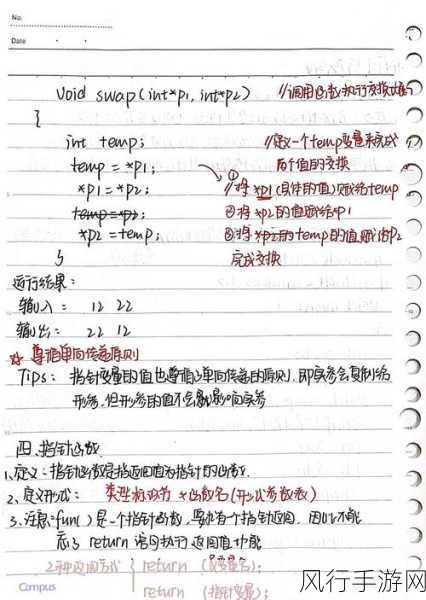 No.
Date
void swap(int*p1, int*p2) //调用函数执行交换
{
int temp; //定义一个temp变量来完成
两个值的交换
temp = *p1; ①
*p1 = *p2; //将*p1(具体的值)赋给temp
temp=*p2; ②将*p2的值赋给*p1
*p2 = temp; ③将*p2的temp的值赋给p2
} 完成交换
运行结果:
输入: 12 22
输出: 22 12
☆ 遵循单向传递原则
Tips: 指针变量的值也遵循单向传递的原则,即实参会复制给
形参,但形参的值不会影响实参
四.指针函数
1、定义:指针函数是指返回值为指针的函数.
2、定义形式: 类型标识符 *函数名(形式参数表)
3、注意:fun()是一个指针函数,要求有个指针返回,因此不能
return语句执行返回值功能
2种返回方式 { return (&变量名);
return (指针变量);
Campus
风行手游网